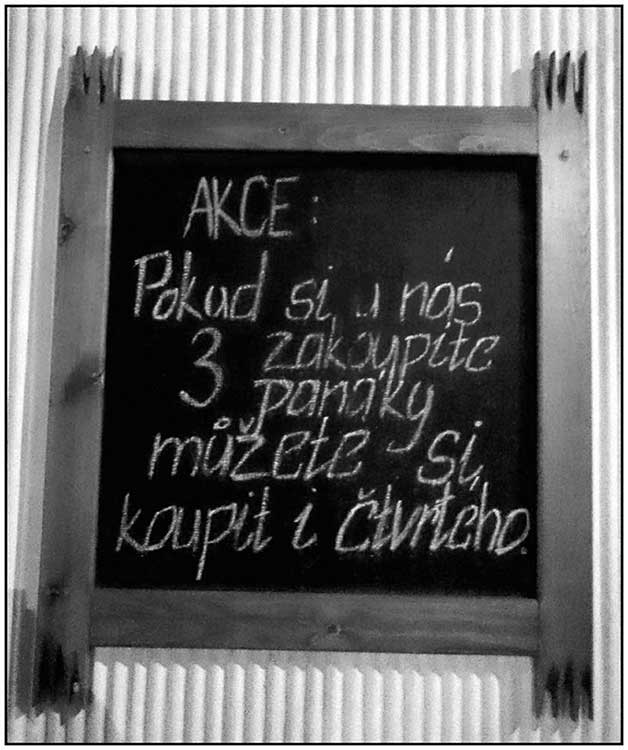 AKCE:
Pokud si u nás
3 zakoupíte
panáky
můžete si
koupit i čtvrtého.